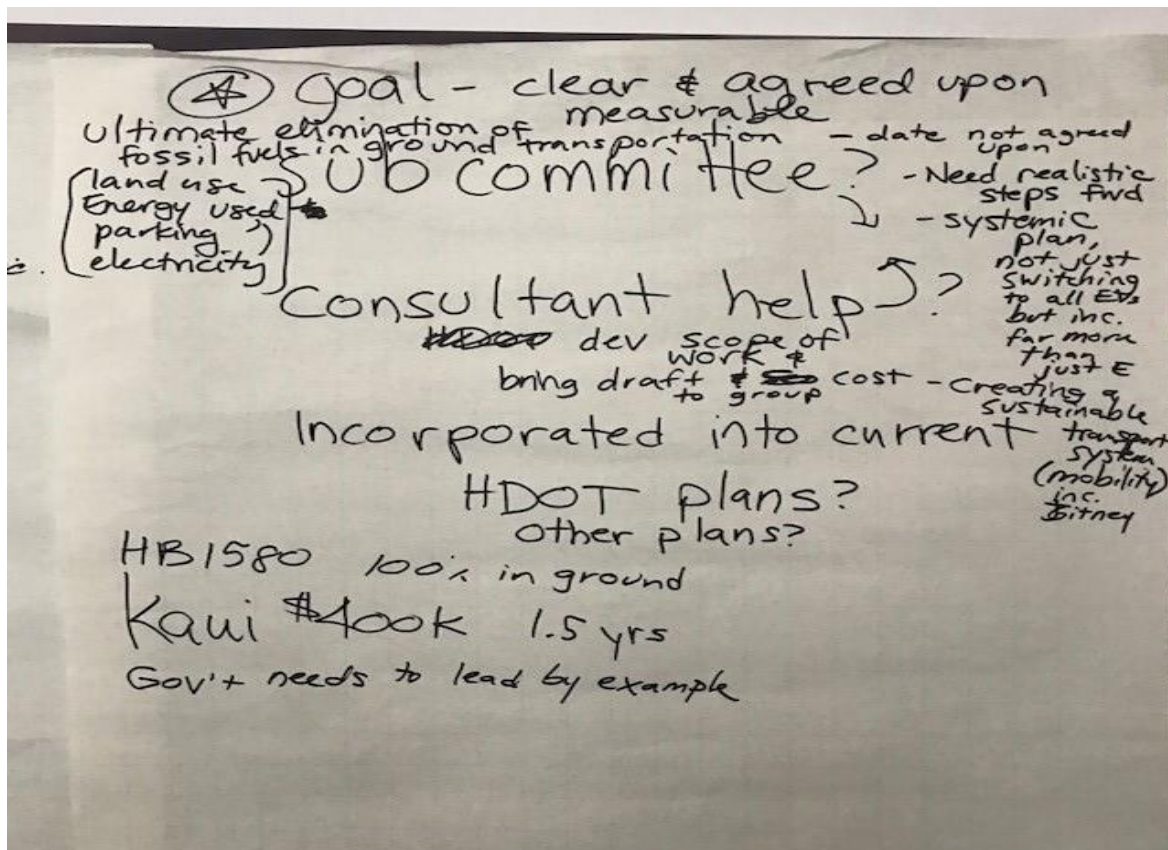 ☆ Goal - clear & agreed upon
measurable
Ultimate elimination of
fossil fuels in ground transportation
- date not agreed
upon
Subcommittee?
land use
Energy used
parking
electricity
- Need realistic
steps fwd
- systemic
plan,
not just
switching
to all EVs
but inc.
far more
than
just E
Consultant help?
dev scope of
work &
bring draft & cost
to group
- Creating a
sustainable
transport
system
(mobility)
inc.
Jitney
Incorporated into current
HDOT plans?
Other plans?
HB1580 100% in ground
Kaui $400K 1.5 yrs
Gov't needs to lead by example